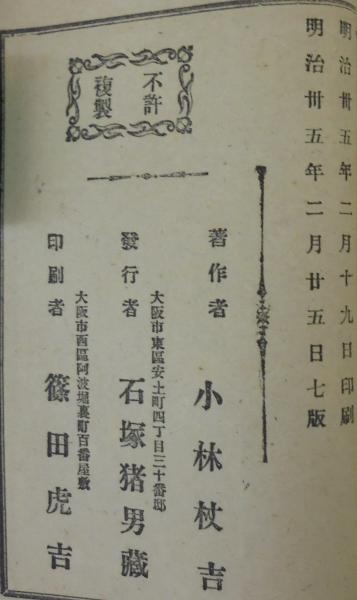 明治卅五年二月十九日印刷
明治卅五年二月廿五日七版
不許
複製
著作者 小林杖吉
大阪市東區安土町四丁目三十番邸
發行者 石塚猪男藏
大阪市西區阿波堀裏町百番屋敷
印刷者 篠田虎吉